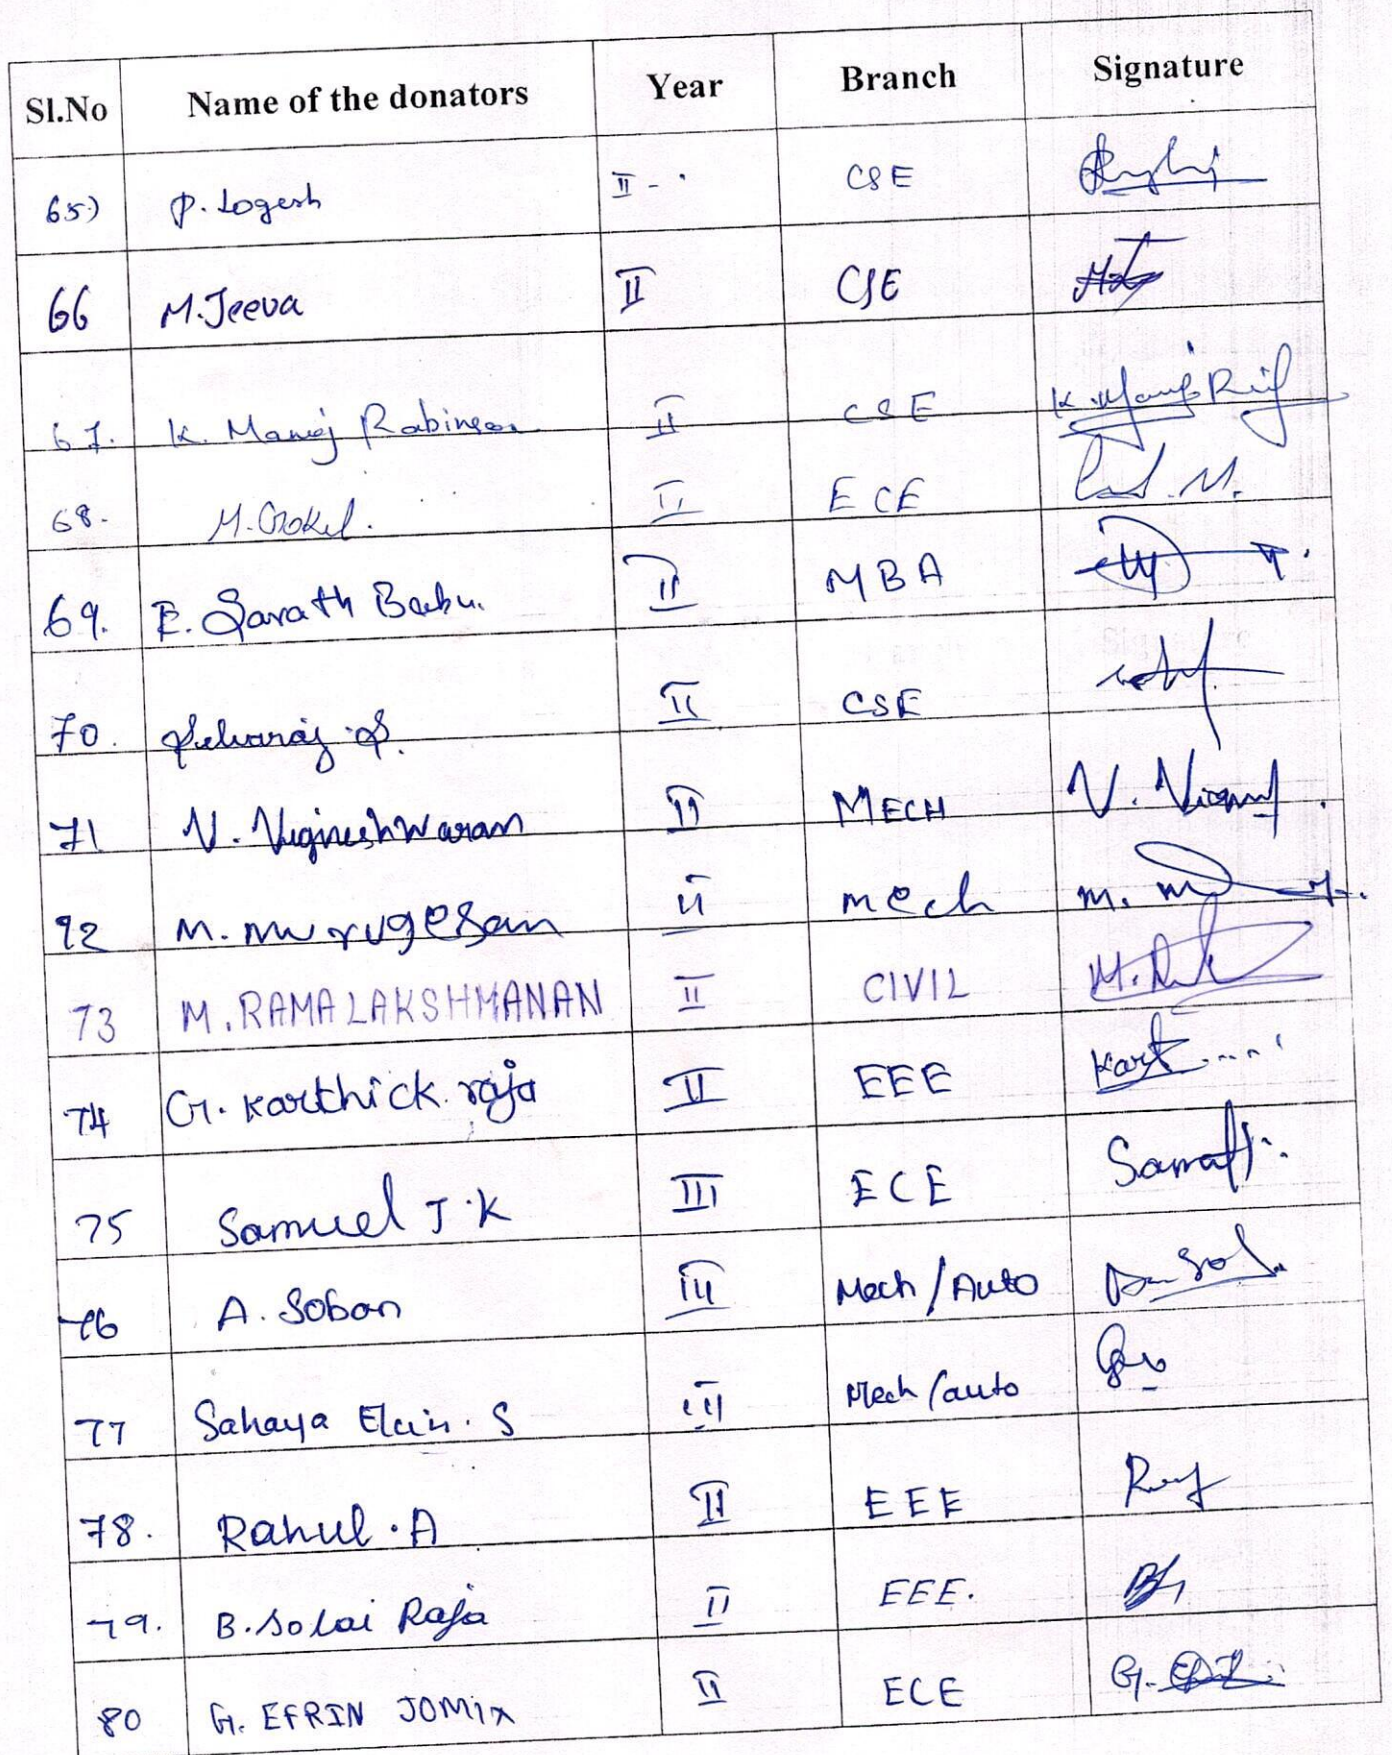 Sl.No Name of the donators Year Branch Signature
65) P. Logesh II - CSE
66 M.Jeeva II CSE
67. K. Manoj Rabinson II CSE K. Manoj
68. M. Gokul. II ECE M.
69. E. Sarath Babu. II MBA
70. Selvaraj .S. II CSE
71 V. Vigneshwaran II MECH V.
72 M. Murugesan II mech m.
73 M. RAMALAKSHMANAN II CIVIL M.
74 G. Karthick raja II EEE Kart
75 Samuel J.K III ECE
76 A. Soban III Mech/Auto
77 Sahaya Elcin. S III Mech/auto
78. Rahul . A II EEE
79. B. Solai Raja II EEE.
80 G. EFRIN JOMIX II ECE G.